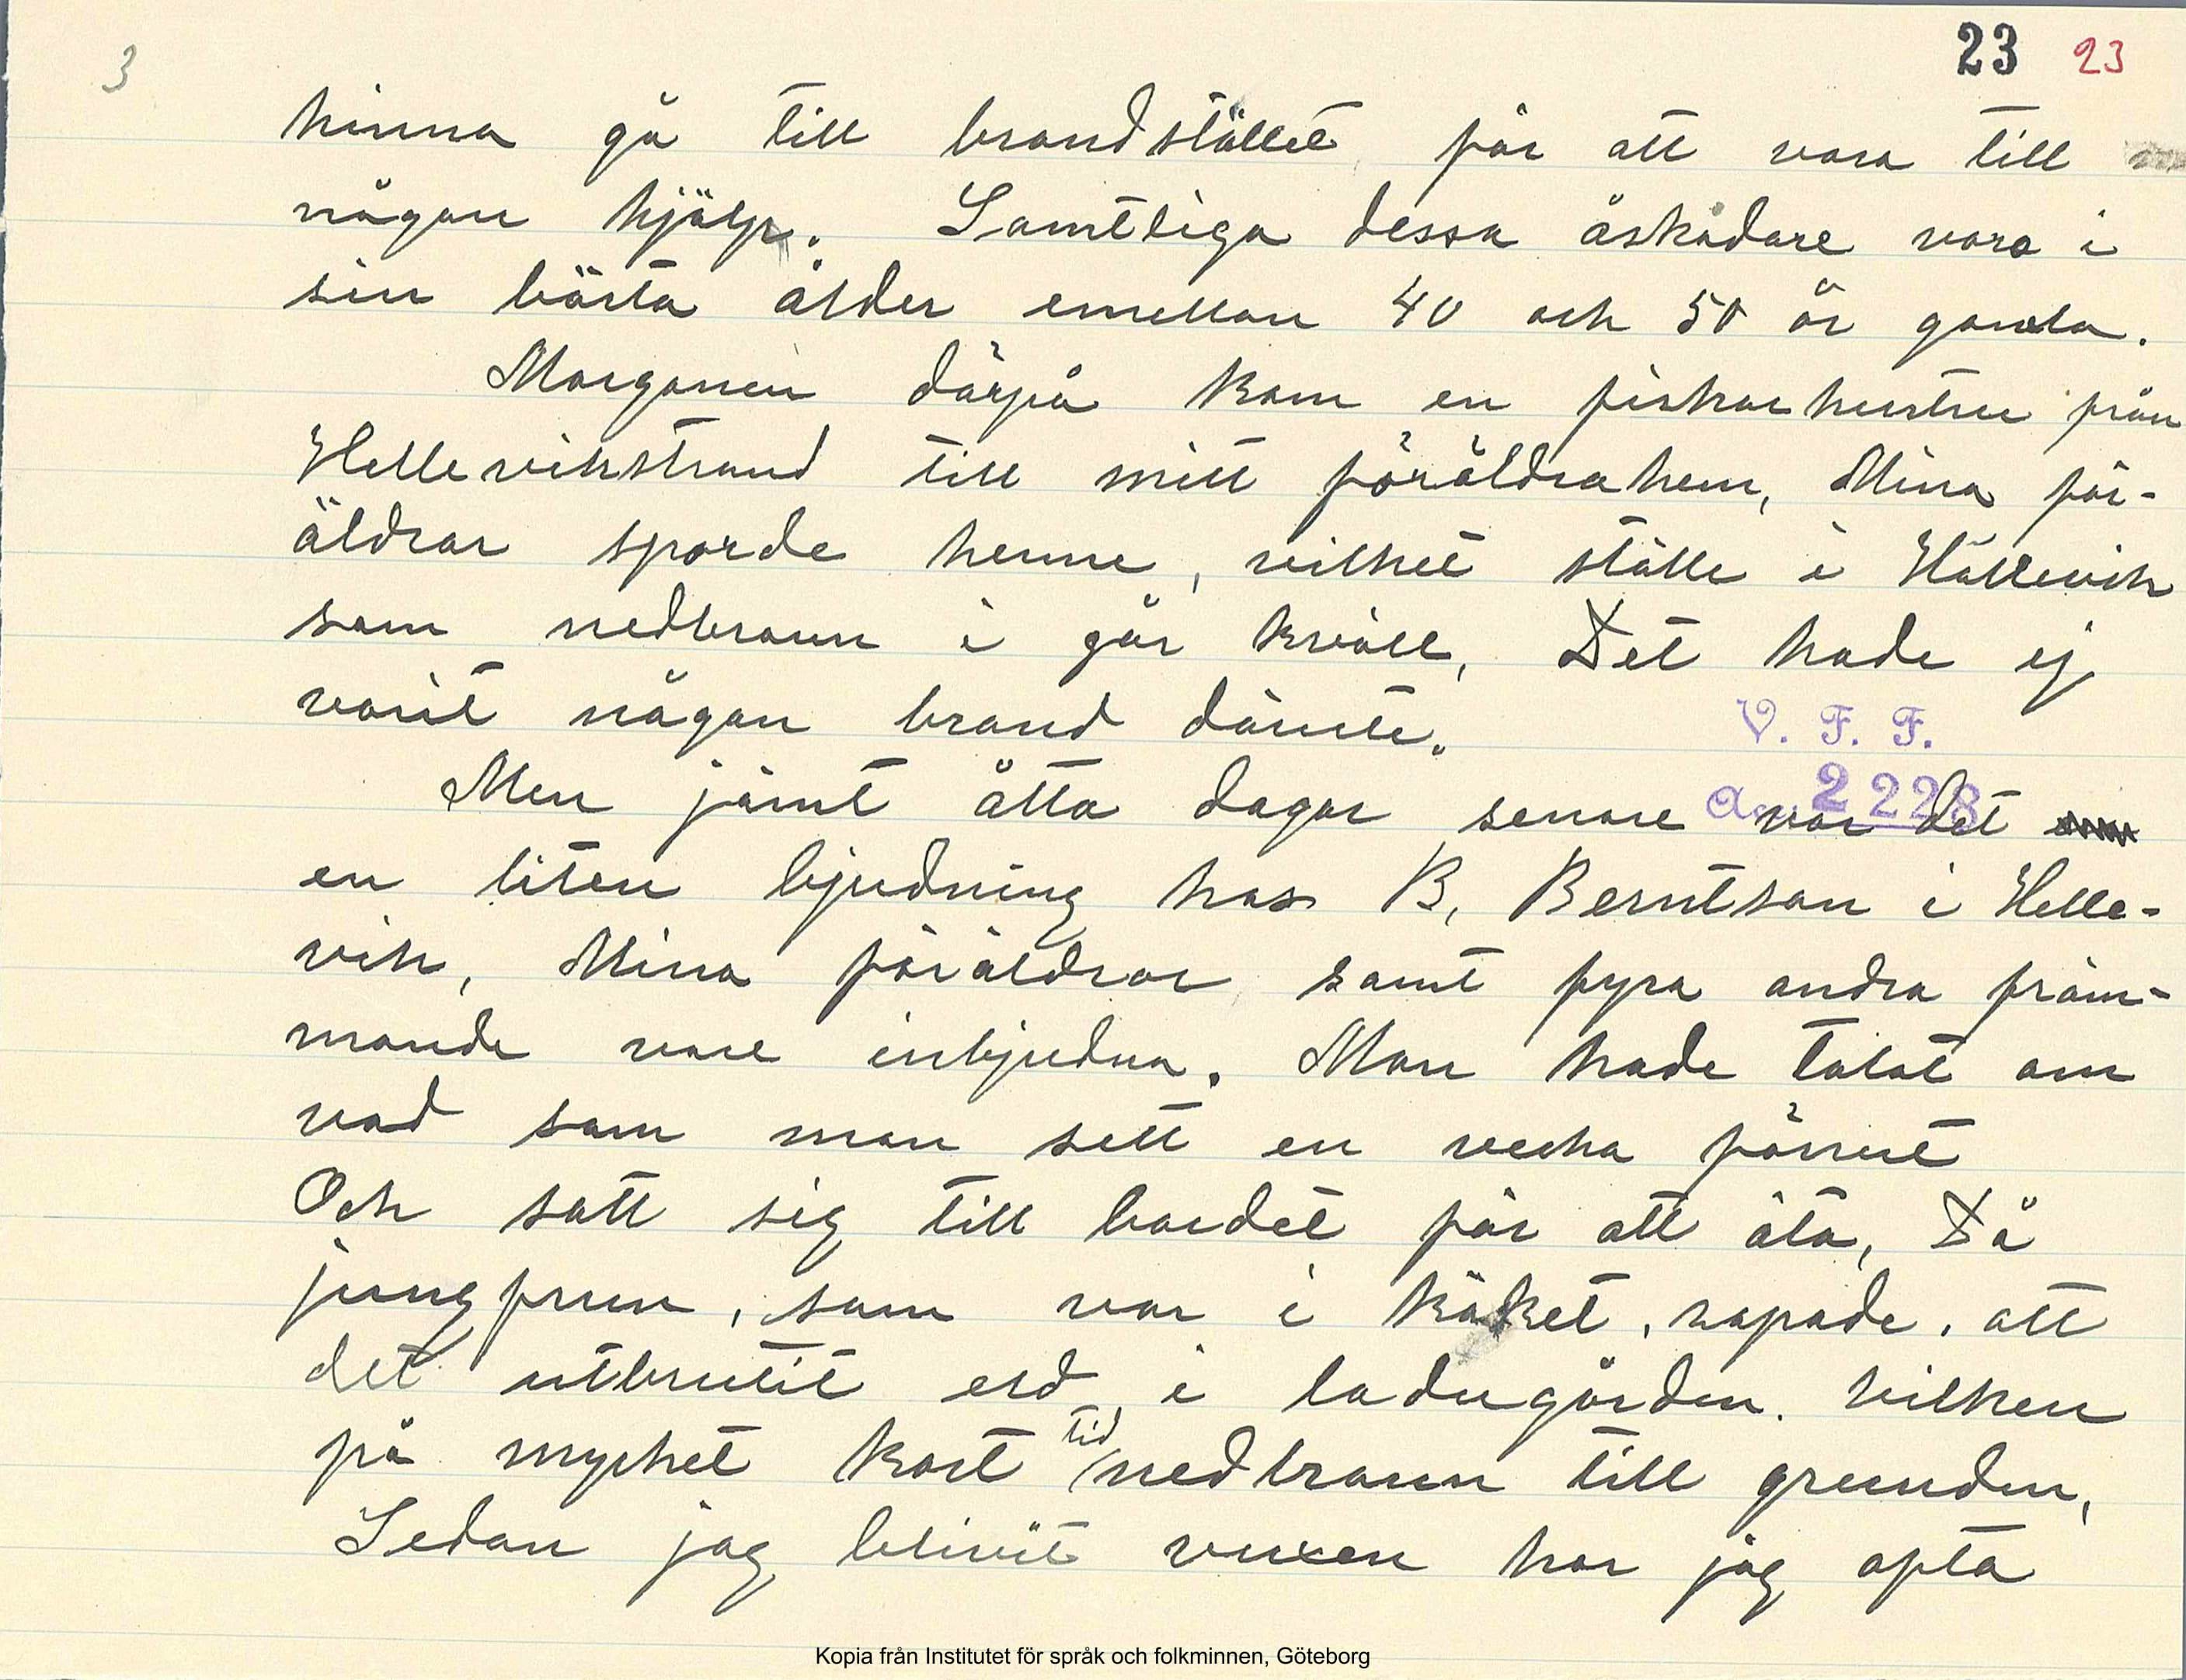 3
23 23
hinna gå till brandstället för att vara till
någon hjälp. Samtliga dessa åskådare vara i
sin bästa ålder emellan 40 och 50 år gamla.
Morgonen därpå kom en fiskarhustru från
Hellevikstrand till mitt föräldrahem, Mina för-
äldrar sporde henne, vilket ställe i Hällevik
som nedbrann i går kväll, Det hade ej
varit någon brand därute.
V. F. F.
Men jämt åtta dagar senare var det
2228
en liten bjudning hos B, Berntson i Helle-
vik, Mina föräldrar samt fyra andra främ-
mande vare inbjudna. Man hade talat om
vad som man sett en vecka förrut
Och satt sig till bordet för att äta, Då
jungfrun, som var i köket, ropade, att
det utbrutit eld i ladugården. vilken
på mycket kort tid nedbrann till grunden,
Sedan jag blivit vuxen har jag ofta
Kopia från Institutet för språk och folkminnen, Göteborg